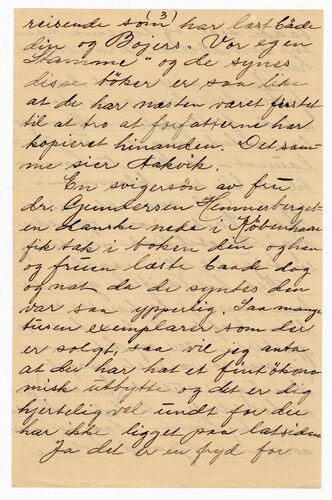 (3)
reisende som har læst både
din og Bojers "Vor egen
Stamme" og de synes
disse bøker er saa like
at de har næsten været fristet
til at tro at forfatterne har
kopieret hinanden. Det sam-
me sier Aakvik.
En svigersøn av fru
dr. Gundersen Hemnesberget
en danske nede i Köbenhavn
fik tak i boken din og han
og fruen læste baade dag
og nat da de syntes den
var saa ypperlig. Saa mange
tusen exemplarer som der
er solgt, saa vil jeg anta
at du har hat et fint økono-
misk utbytte og det er dig
hjertelig vel undt for du
har ikke ligget paa latsiden
Ja det er en fryd for